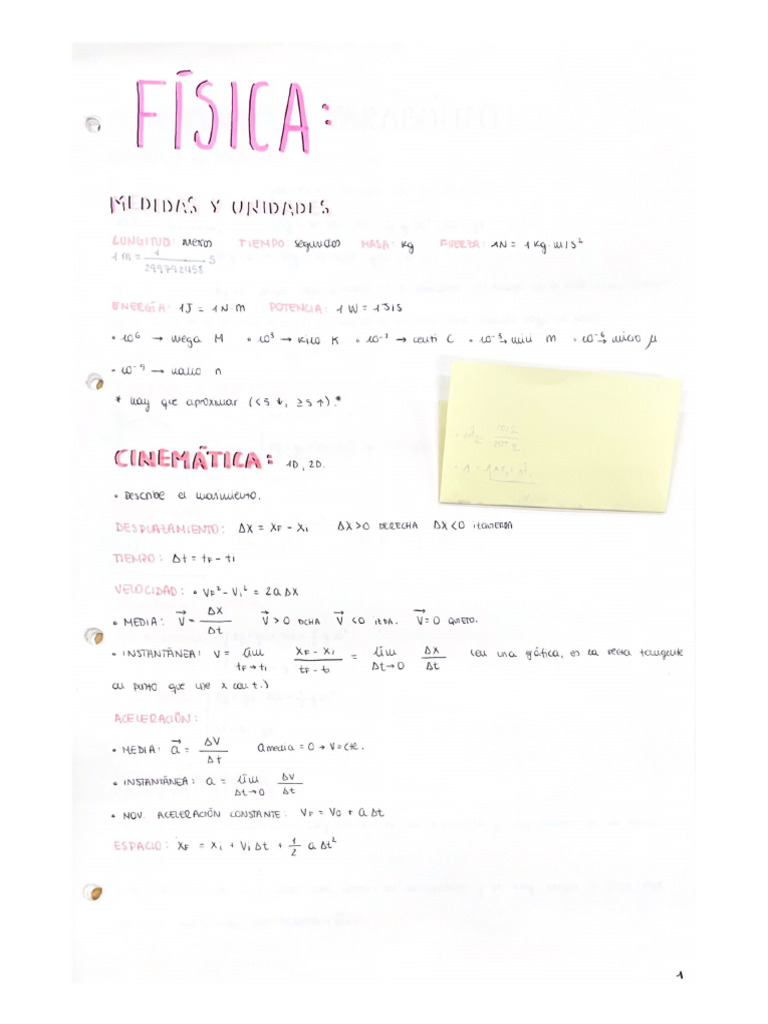 FÍSICA:
MEDIDAS Y UNIDADES
LONGITUD: metros TIEMPO: segundos MASA: kg FUERZA: 1N = 1 kg·m/s²
1 m = 1/299792458 s
ENERGÍA: 1J = 1N·m POTENCIA: 1 W = 1J/s
• 10⁶ → mega M • 10³ → kilo K • 10⁻² → centi C • 10⁻³ → mili m • 10⁻⁶ → micro μ
• 10⁻⁹ → nano n
* hay que aproximar (<5 ↓, ≥5 ↑).*
CINEMÁTICA: 1D, 2D.
• Describe el movimiento.
DESPLAZAMIENTO: Δx = xF - xi Δx>0 DERECHA Δx<0 izquierda
TIEMPO: Δt = tF - ti
VELOCIDAD: • VF² - Vi² = 2a Δx
• MEDIA: V⃗ = Δx/Δt V⃗ > 0 DCHA V⃗ < 0 izda. V⃗ = 0 QUIETO.
• INSTANTÁNEA: V = lím tF→ti (xF - xi)/(tF - ti) = lím Δt→0 Δx/Δt (en una gráfica, es la recta tangente
al punto que une x con t.)
ACELERACIÓN:
• MEDIA: a⃗ = ΔV/Δt a media = 0 → V=cte.
• INSTANTÁNEA: a = lím Δt→0 ΔV/Δt
• MOV. ACELERACIÓN CONSTANTE: VF = V0 + a Δt
ESPACIO: xF = xi + Vi Δt + 1/2 a Δt²
1